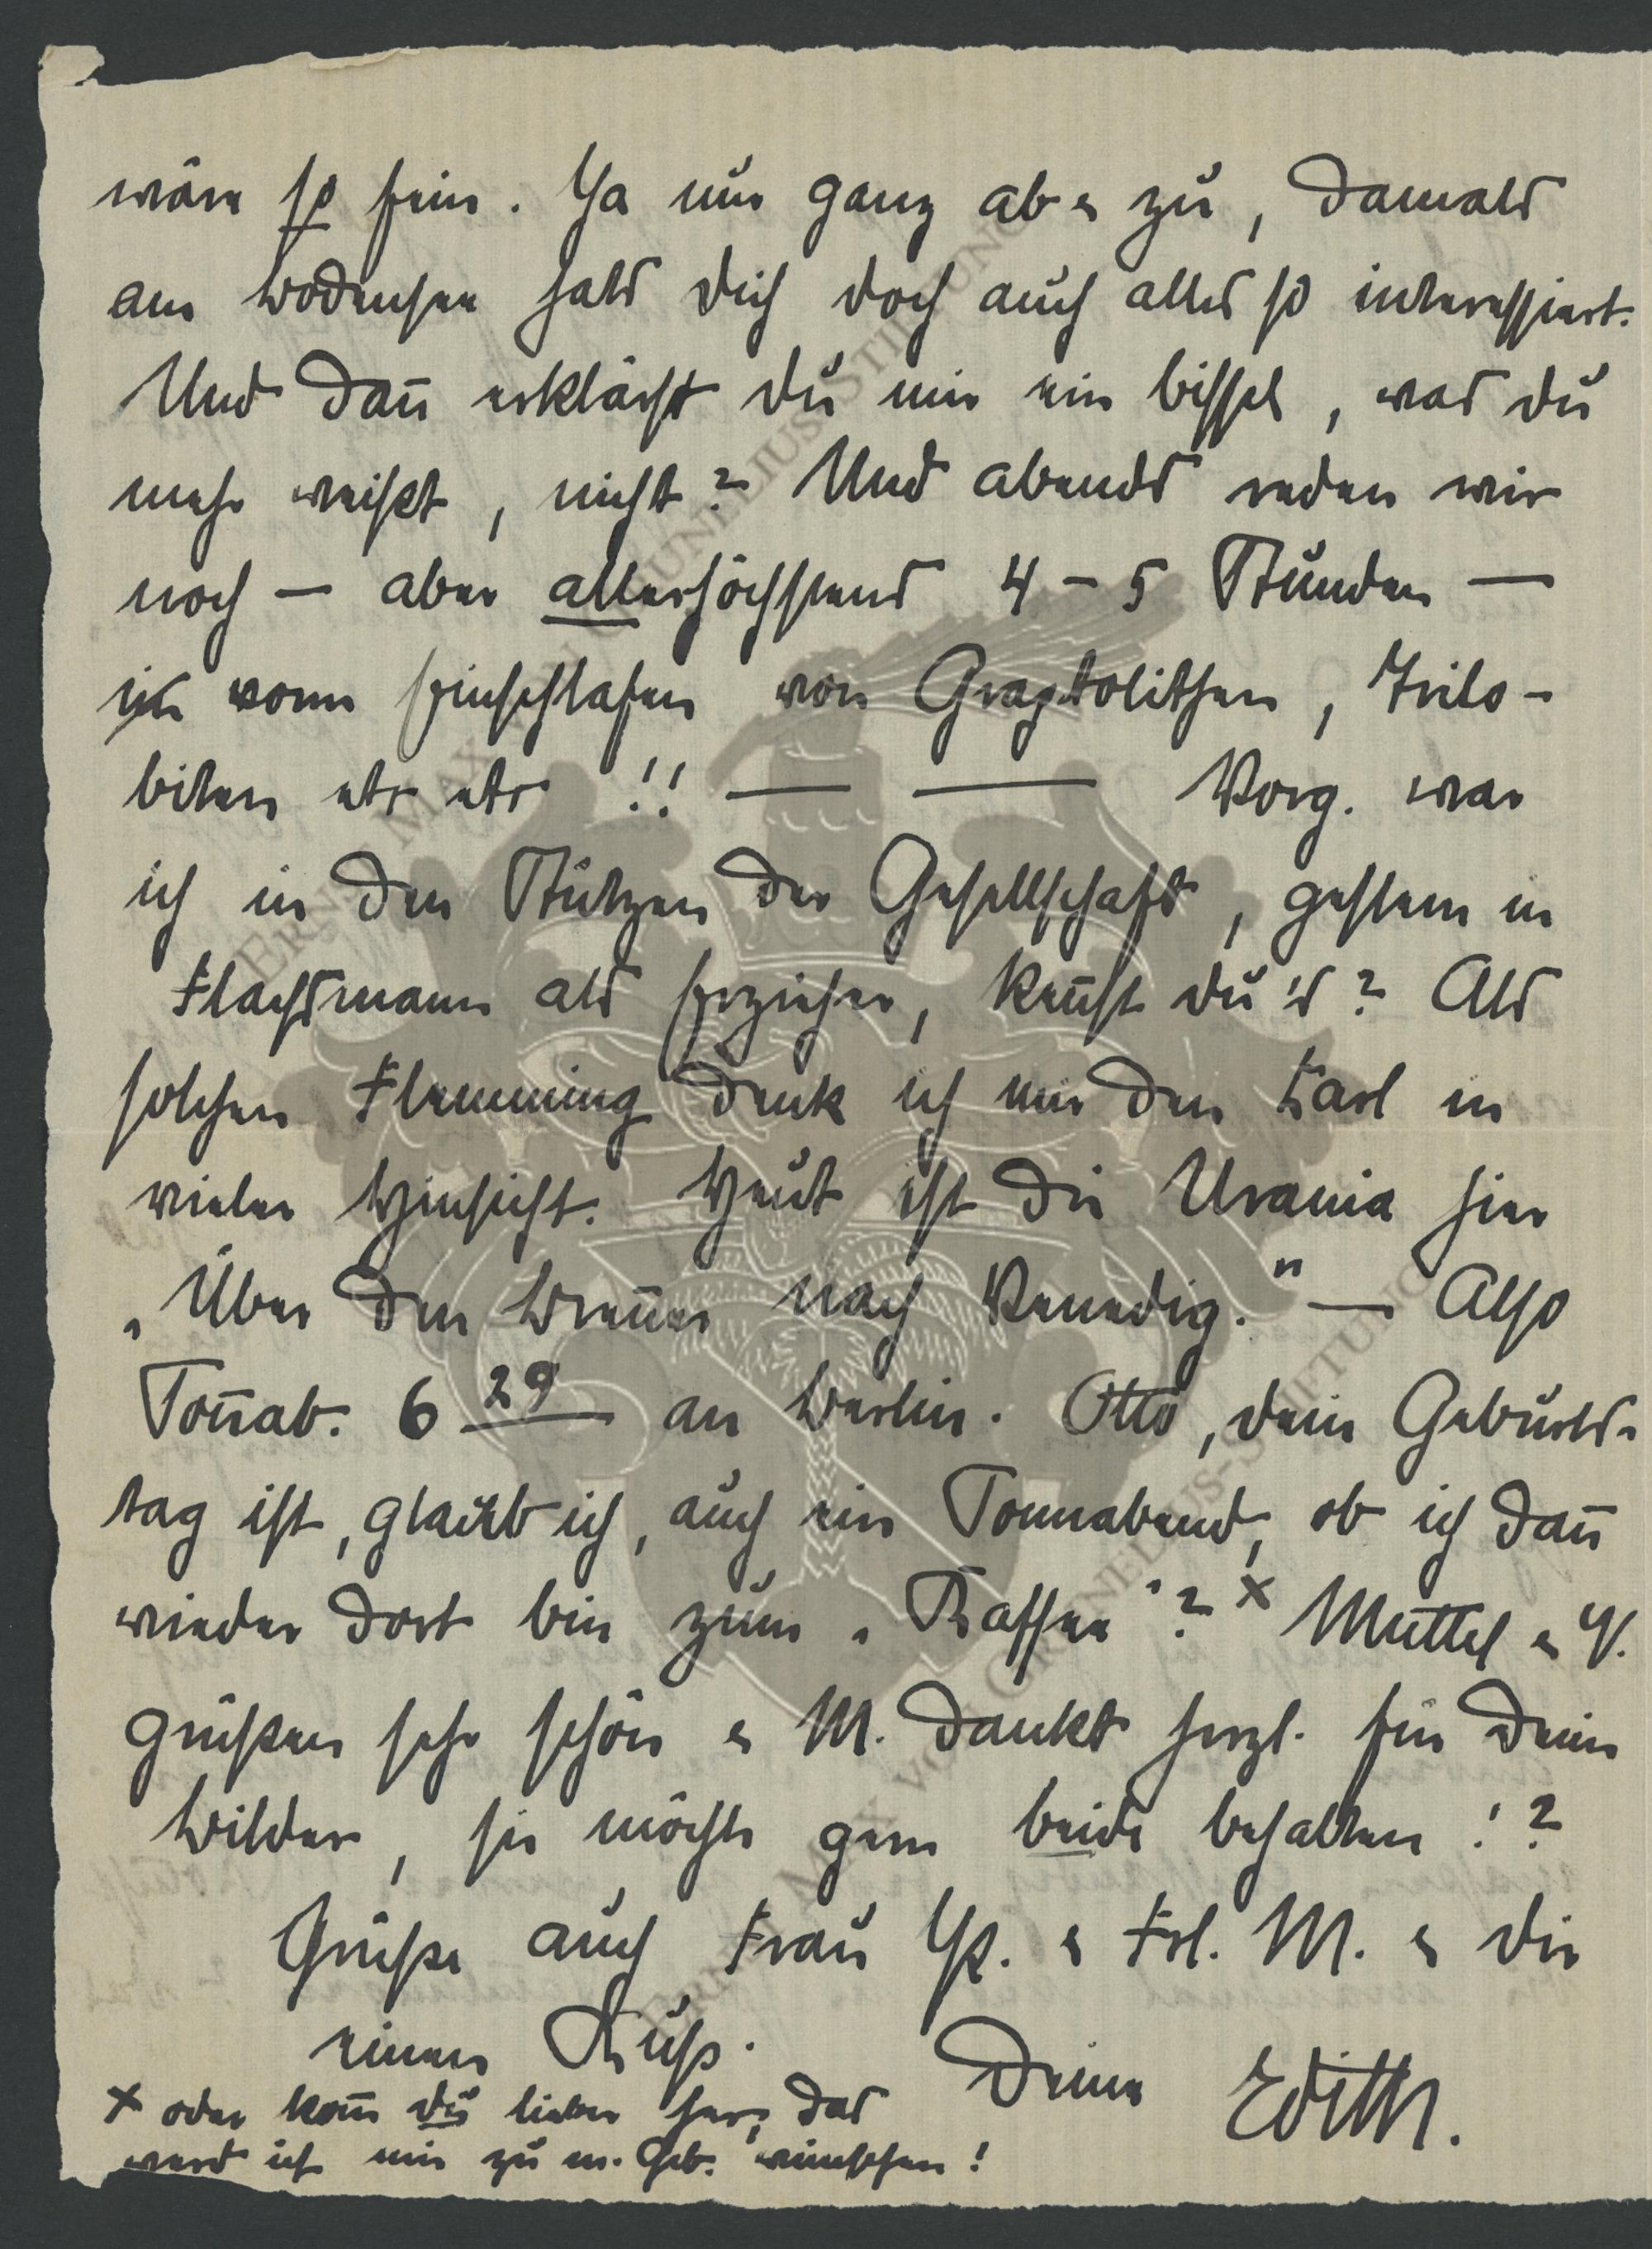 wäre so fein. Ja nur ganz ab & zu, damals
am Bodensee hats dich doch auch alles so interessiert.
Und dañ erklärst du mir ein bissel, was du
mehr weißt, nicht? Und abends reden wir
noch – aber allerhöchstens 4 – 5 Stunden –
vorm Einschlafen von Graptolithen, Trilo-
biten etc etc !! — — Vorg. war
ich in den Stützen der Gesellschaft, gestern in
Flachsmann als Erzieher, keñst du's? Als
solchen Flemming denk ich mir den Karl in
vieler Hinsicht. Heut ist die Urania hier
„Über den Breñer nach Venedig." — Also
Soñab. 6 29 an Berlin. Otto, dein Geburts-
tag ist, glaub ich, auch ein Sonnabend, ob ich dañ
wieder dort bin zum „Kaffee"? x Muttel & V.
grüßen sehr schön & M. dankt herzl. für deine
Bilder, sie möchte gern beide behalten !?
Grüße auch Frau Hp. & Frl. M. & dir
einen Kuß. Deine Edith.
x oder kom̄ du lieber her, das
werd ich mir zu m. Geb. wünschen!
ERNST MAX VON GRUNELIUS-STIFTUNG
ERNST MAX VON GRUNELIUS-STIFTUNG